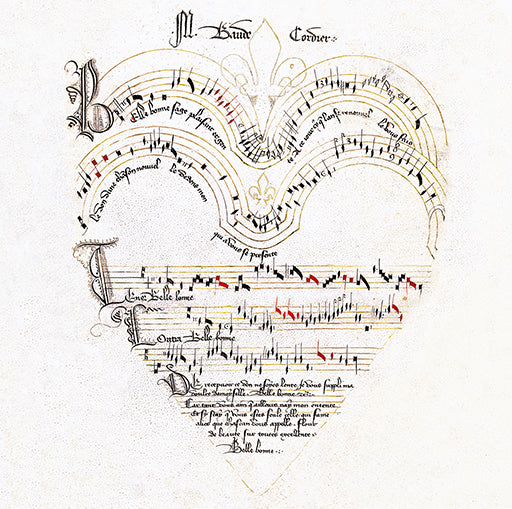 M. Baude Cordier
Elle bonne sage plaisant et gen
te A ce jour cy que lan se renouvel
le vous fais
le don dune chanson nouvel le dedans mon
qui a vous se presente
Tenor Belle bonne
Contra Belle bonne
De recepvoir ce don ne soyes lente. Je vous suppli ma
doulce damoyselle. Belle bonne
Car tant vous aim qaillours nay mon entente
et sy scay q vous estes seule celle. qui fame
aves que chascun vous appelle. flour
de beaute sur toutes excellente.
Belle bonne